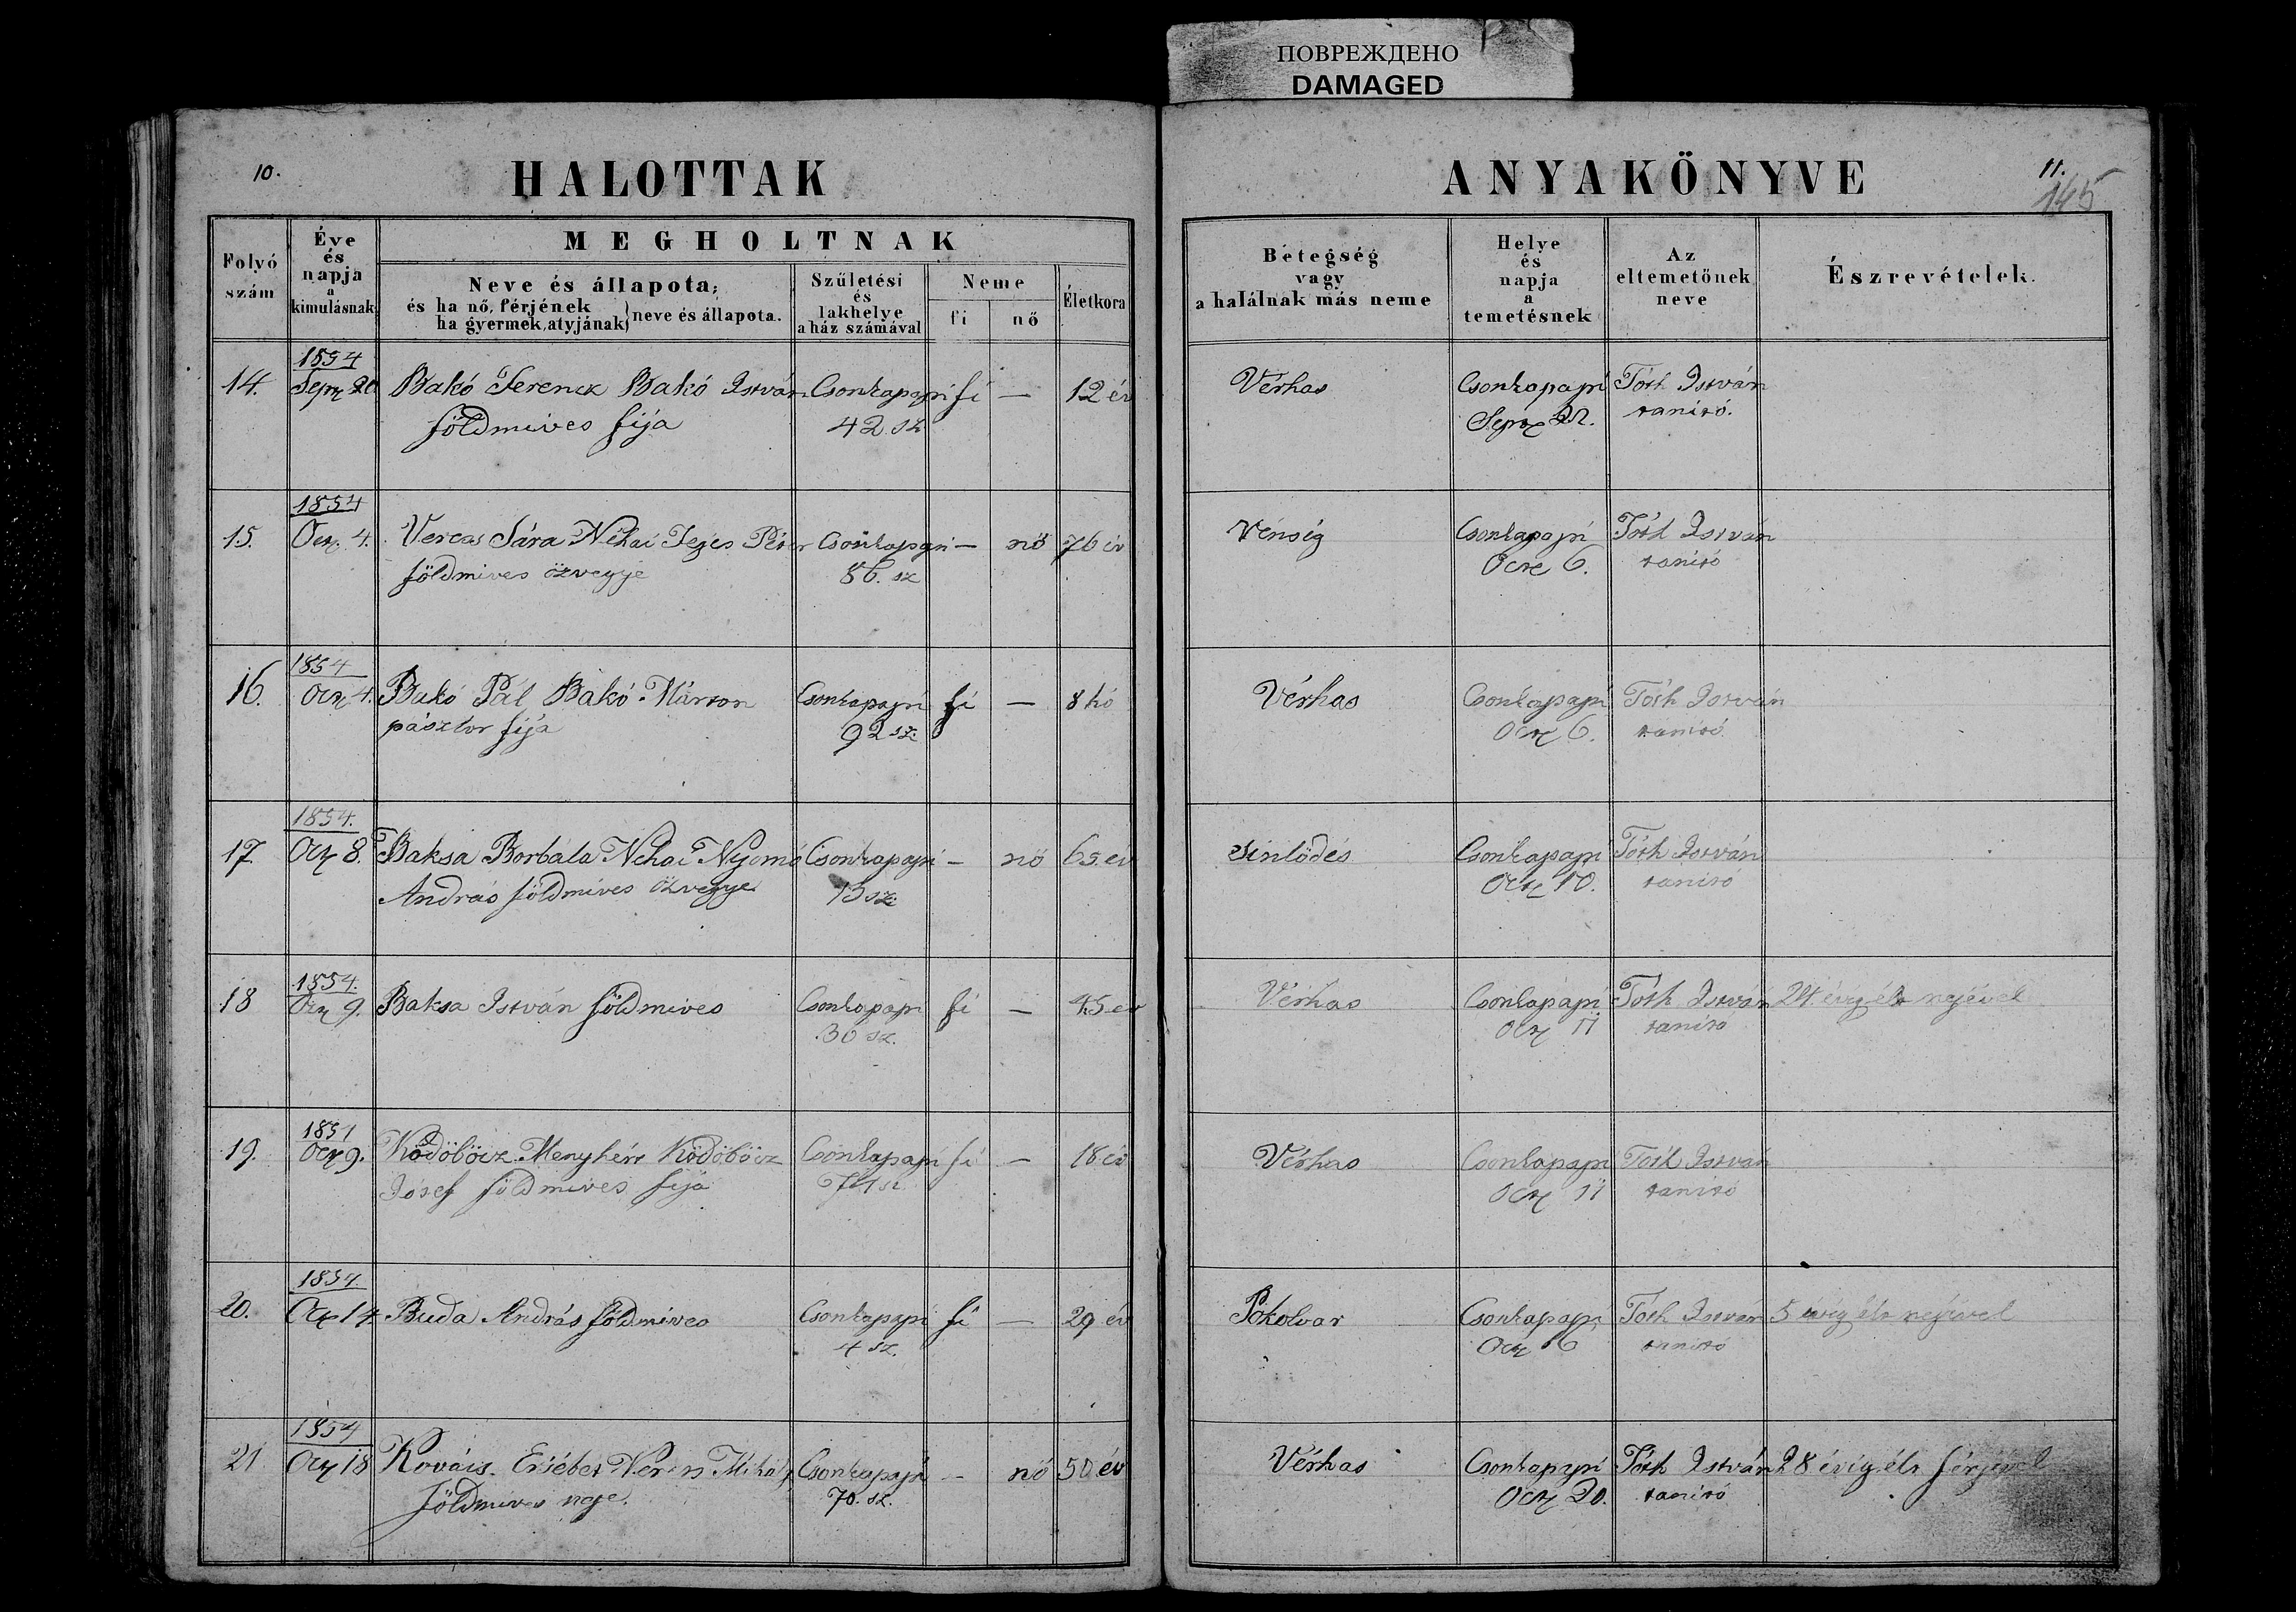 ПОВРЕЖДЕНО
DAMAGED
10.
HALOTTAK
ANYAKÖNYVE
11.
145
Folyó szám
Éve és napja a kimulásnak
MEGHOLTNAK
Neve és állapota;
és ha nő, férjének
ha gyermek, atyjának} neve és állapota.
Születési és lakhelye a ház számával
Neme
fi
nő
Életkora
Betegség vagy a halálnak más neme
Helye és napja a temetésnek
Az eltemetőnek neve
Észrevételek.
14. 1854 Sept 20 Bakó Ferencz Bakó István Csonkapapi fi — 12 év Vérhas Csonkapapi Tóth István
földmives fija 42 sz Sept 22. tanító.
15. 1854 Oct. 4. Sára Néhai Péter Csonkapapi — nö 76 év Vénség Csonkapapi Tóth István
földmives özvegye 86. sz Oct 6. tanító
16. 1854 Oct 4. Bakó Pál Bakó Márton Csonkapapi fi — 8 hó Vérhas Csonkapapi Tóth István
pásztor fija 92 sz. Oct 6. tanító.
17. 1854. Oct 8. Baksa Borbála Néhai Csonkapapi — nö 65 év Sinlödés Csonkapapi Tóth István
András földmives özvegye 13 sz. Oct 10. tanító
18 1854. Oct 9. Baksa István földmives Csonkapapi fi — 45 év Vérhas Csonkapapi Tóth István 24 évig élt nejével
30 sz. Oct 11 tanító
19. Oct 9. Ködöböcz Menyhért Ködöböcz Csonkapapi fi — 18 év Vérhas Csonkapapi Tóth István
Jósef földmives fija Oct 11 tanító
20. 1854. Oct 14 Buda András földmives Csonkapapi fi — 29 év Pokolvar Csonkapapi Tóth István 5 évig élt nejével
4 sz. Oct 16 tanító
21 1854 Oct 18 Kovács Ersébet Mihály Csonkapapi — nö 50 év Vérhas Csonkapapi Tóth István 28 évig élt férjével
földmives neje. 70. sz. Oct 20. tanító